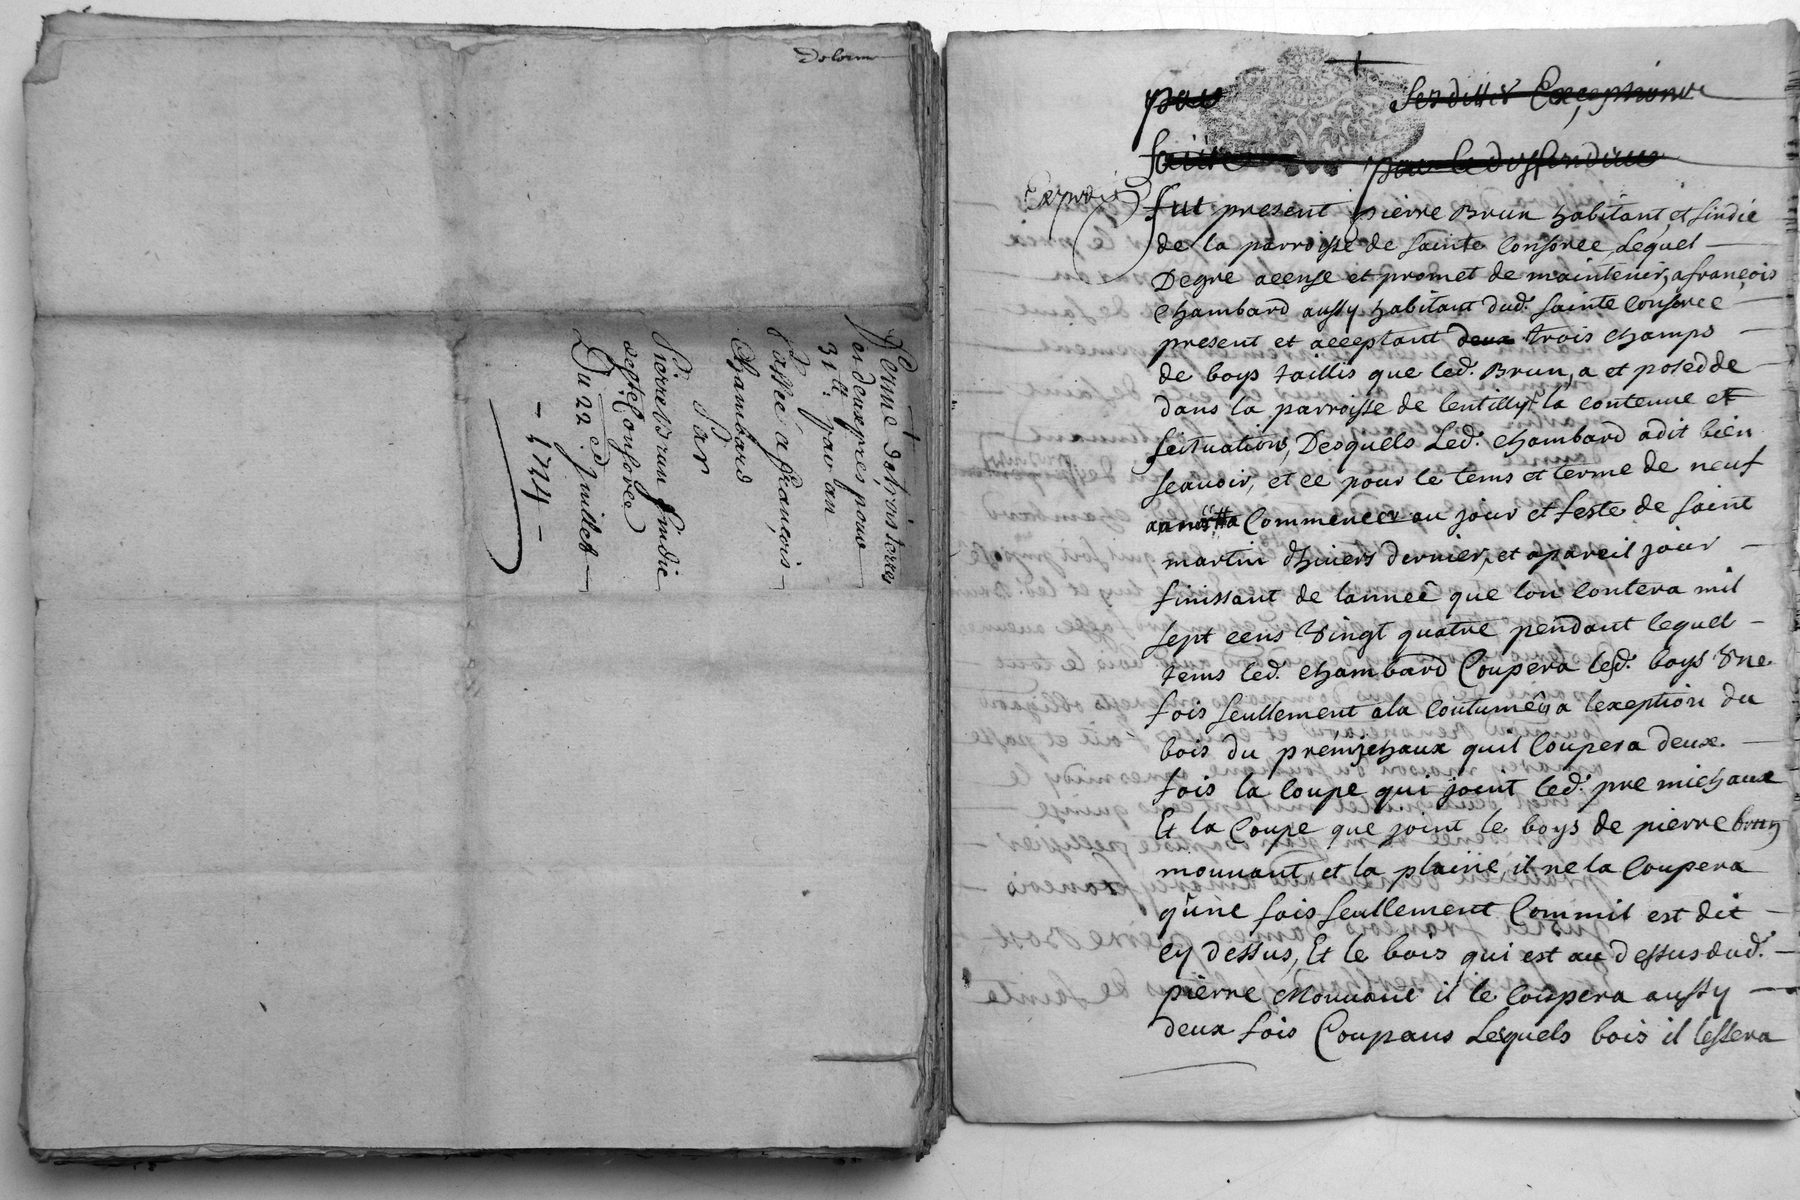 Delorme
Ferme de trois terres
et deux pres pour
31ᴸᵗ. par an
Passée a françois
Chambard
Par
Pierre Brun sindic
de Ste Consorce
Du 22ᵉᵈ Juillet
- 1714 -
pour ses dittes Exceptions
faitte pour le deffendeur
Expedié
fut present pierre Brun habitant et sindic
de la parroisse de sainte Consorce Lequel
Degre acense et promet de maintenir, a françois
Chambard aussy habitant dud. sainte Consorce
present et acceptant deux trois champs
de boys taillis que led. Brun, a et posedde
dans la parroisse de lentilly, la contenue et
scituation, Desquels Led. chambard a dit bien
scavoir, et ce pour le tems et terme de neuf
années a Commencer au jour et feste de saint
martin dhivers dernier, et a pareil jour
finissant de lannée que lon contera mil
sept cens vingt quatre pendant lequel
tems led. chambard Coupera led. boys vne
fois seullement a la coutumée, a lexeption du
bois du pré michaux quil Coupera deux
fois la Coupe qui joint led. pre michaux
Et la Coupe que joint le boys de pierre
mouuant, et la plaine, il ne la Coupera
qune fois seullement Comme il est dit
cy dessus, Et le bois qui est au dessus dud.
pierre Mouuant il le coupera aussy
deux fois Coupans Lesquels bois il lessera